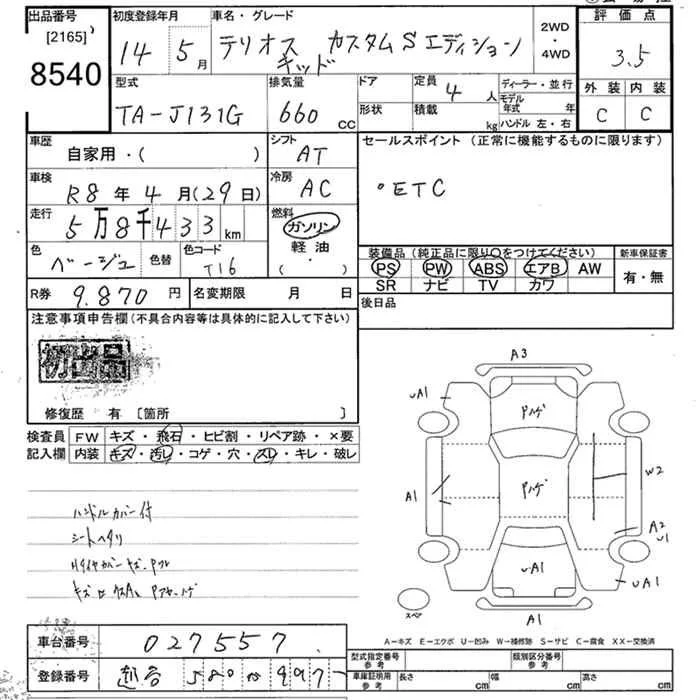 出品番号 [2165] 8540
初度登録年月 14 5月
車名・グレード テリオスキッド カスタムSエディション
2WD・4WD
評価点 3.5
型式 TA-J131G
排気量 660 CC
ドア 形状
定員 4人 積載 kg
ディーラー・並行 モデル年式 年 ハンドル 左・右
外装 C 内装 C
車歴 自家用・( )
シフト AT
セールスポイント (正常に機能するものに限ります)
・ETC
車検 R8年4月(29日)
冷房 AC
走行 5万8千433km
燃料 ガソリン 軽油 ・( )
色 ベージュ 色替 色コード T16
装備品 (純正品に限り〇をつけてください)
PS PW ABS エアB AW
SR ナビ TV カワ
新車保証書 有・無
R券 9.870円 名変期限 月 日
後日品
注意事項申告欄 (不具合内容等は具体的に記入して下さい)
初出品
修復歴 有 [箇所 ]
検査員記入欄
FW キズ・飛石・ヒビ割・リペア跡・×要
内装 キズ・汚レ・コゲ・穴・スレ・キレ・破レ
ハンドルカバー付
シートヘタリ
A3
uA1
Pハゲ
A1
Pハゲ
W2
A2
U1
uA1
uA1
スペア
A1
A-キズ E-エクボ U-凹み W-補修跡 S-サビ C-腐食 XX-交換済
車台番号 027557
登録番号 580 997
型式指定番号 参考
類別区分番号 参考
車庫証明用 参考 長さ cm 幅 cm 高さ cm